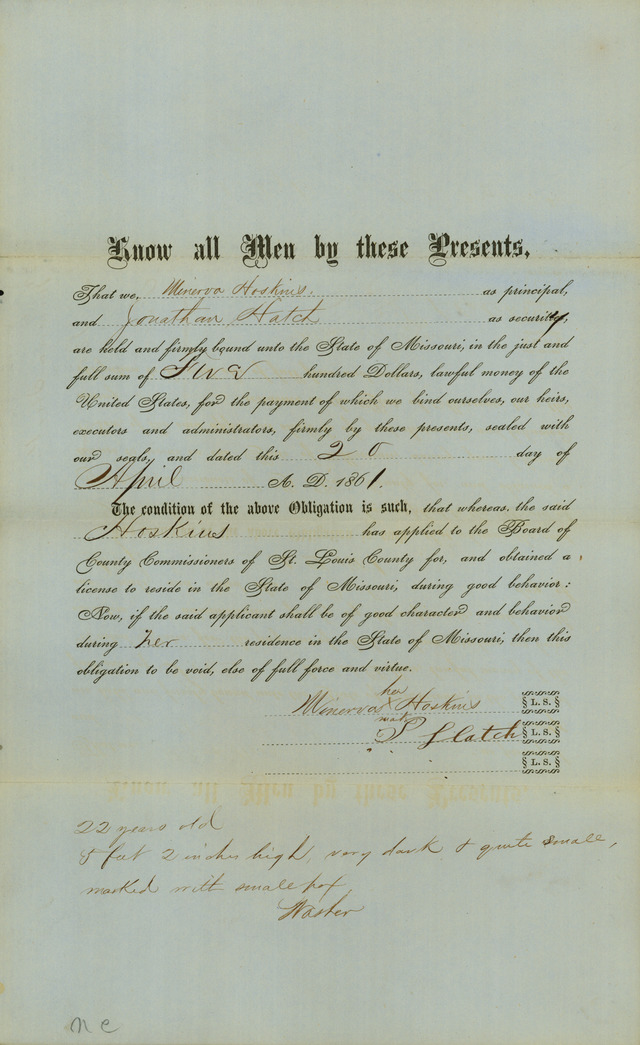 Know all Men by these Presents,
That we, Minerva Hoskins. as principal,
and Jonathan Hatch as security,
are held and firmly bound unto the State of Missouri, in the just and
full sum of Five hundred Dollars, lawful money of the
United States, for the payment of which we bind ourselves, our heirs,
executors and administrators, firmly by these presents, sealed with
our seals, and dated this 20 day of
April A. D. 1861.
The condition of the above Obligation is such, that whereas, the said
Hoskins has applied to the Board of
County Commissioners of St. Louis County for, and obtained a
license to reside in the State of Missouri, during good behavior:
Now, if the said applicant shall be of good character and behavior
during her residence in the State of Missouri, then this
obligation to be void, else of full force and virtue.
her
Minerva x Hoskins § L. S. §
mark
Hatch § L. S. §
§ L. S. §
22 years old
5 feet 2 inches high, very dark & quite small,
marked with small pox
Washer